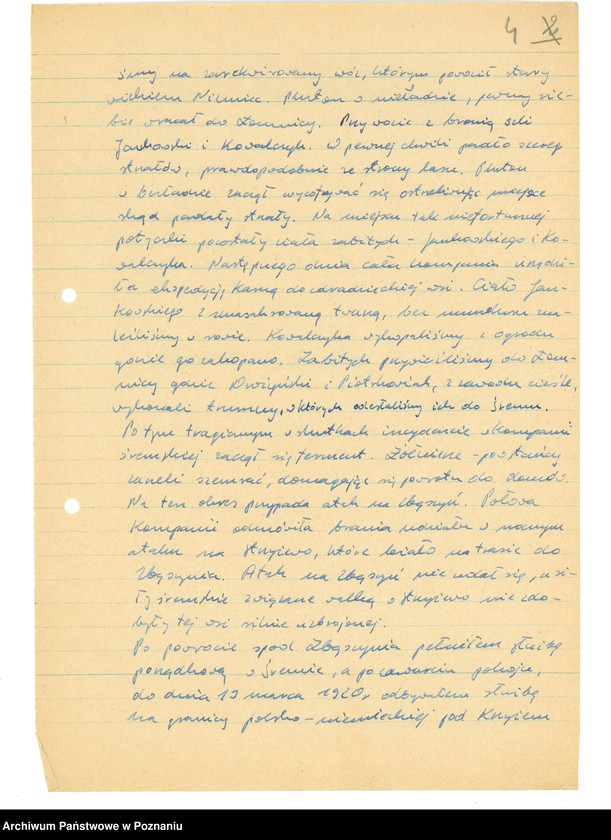 4 2
śmy na zarekwirowany wóz, którym powoził stary
wiekiem Niemiec. Pluton w nieładzie, pewny sie-
bie wracał do Łomnicy. Przy wozie z bronią szli
Jankowski i Kowalczyk. W pewnej chwili padło szereg
strzałów, prawdopodobnie ze strony lasu. Pluton
w bezładzie zaczął wycofywać się ostrzeliwując miejsce
skąd padały strzały. Na miejscu tak niefortunnej
potyczki pozostały ciała zabitych – Jankowskiego i Ko-
walczyka. Następnego dnia cała kompania urządzi-
ła ekspedycję karną do zdradzieckiej wsi. Ciało Jan-
kowskiego z zmasakrowaną twarzą, bez munduru zna-
leźliśmy w rowie. Kowalczyka wykopaliśmy z ogrodu
gdzie go zakopano. Zabitych przywieźliśmy do Łom-
nicy gdzie Drożyński i Piotrkowiak, z zawodu cieśle,
wykonali trumny, w których odesłaliśmy ich do Śremu.
Po tym tragicznym w skutkach incydencie w kompanii
śremskiej zaczął się ferment. Żołnierze – powstańcy
zaczęli szemrać, domagając się powrotu do domów.
Na ten okres przypada atak na Zbąszyń. Połowa
kompanii odmówiła brania udziału w nocnym
ataku na Strzyżewo, które leżało na trasie do
Zbąszynia. Atak na Zbąszyń nie udał się, a si-
ły śremskie związane walką o Strzyżewo nie zdo-
były tej wsi silnie uzbrojonej.
Po powrocie spod Zbąszynia pełniłem służbę
porządkową w Śremie, a po zawarciu pokoju,
do dnia 19 marca 1920 r odbywałem służbę
na granicy polsko-niemieckiej pod Krzyżem
Archiwum Państwowe w Poznaniu